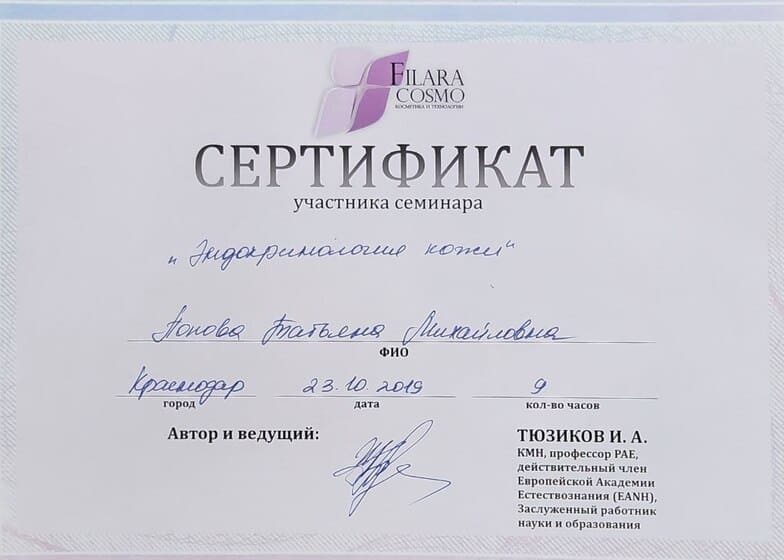 FILARA
COSMO
КОСМЕТИКА И ТЕХНОЛОГИИ
СЕРТИФИКАТ
участника семинара
„Эндокринология кожи“
Попова Татьяна Михайловна
ФИО
Краснодар 23.10.2019 9
город дата кол-во часов
Автор и ведущий: ТЮЗИКОВ И. А.
КМН, профессор РАЕ,
действительный член
Европейской Академии
Естествознания (EANH),
Заслуженный работник
науки и образования